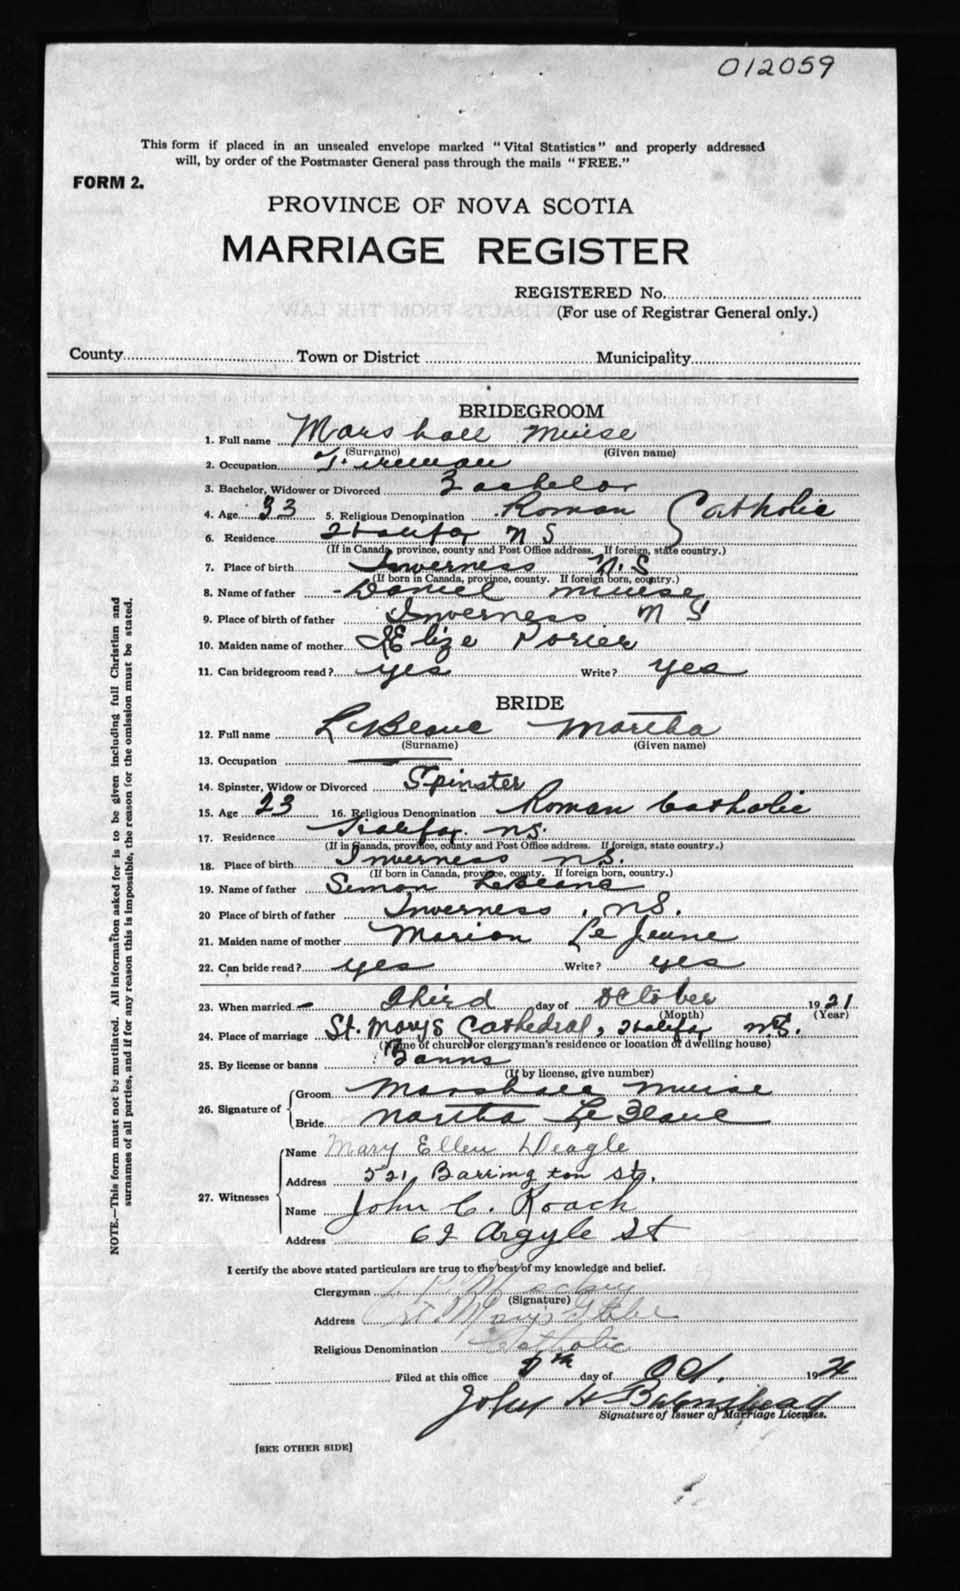 012059
This form if placed in an unsealed envelope marked "Vital Statistics" and properly addressed
will, by order of the Postmaster General pass through the mails "FREE."
FORM 2.
PROVINCE OF NOVA SCOTIA
MARRIAGE REGISTER
REGISTERED No.
(For use of Registrar General only.)
County Town or District Municipality
BRIDEGROOM
1. Full name Marshall Muise
(Surname) (Given name)
2. Occupation Fireman
3. Bachelor, Widower or Divorced Bachelor
4. Age 33 5. Religious Denomination Roman Catholic
6. Residence Halifax N S
(If in Canada, province, county and Post Office address. If foreign, state country.)
7. Place of birth Inverness N.S
(If born in Canada, province, county. If foreign born, country.)
8. Name of father Daniel Muise
9. Place of birth of father Inverness N S
10. Maiden name of mother Elize Porier
11. Can bridegroom read? yes Write? yes
BRIDE
12. Full name LeBlanc Martha
(Surname) (Given name)
13. Occupation
14. Spinster, Widow or Divorced Spinster
15. Age 23 16. Religious Denomination Roman Catholic
17. Residence Halifax. NS.
(If in Canada, province, county and Post Office address. If foreign, state country.)
18. Place of birth Inverness NS.
(If born in Canada, province, county. If foreign born, country.)
19. Name of father Simon LeBlanc
20 Place of birth of father Inverness, NS.
21. Maiden name of mother Marion LeJeune
22. Can bride read? yes Write? yes
23. When married Third day of October 1921
(Month) (Year)
24. Place of marriage St. Marys Cathedral, Halifax NS.
(Name of church or clergyman's residence or location of dwelling house)
25. By license or banns Banns
(If by license, give number)
26. Signature of Groom Marshall Muise
Bride Martha LeBlanc
27. Witnesses Name Mary Ellen Deagle
Address 521 Barrington St.
Name John C. Roach
Address 62 Argyle St
I certify the above stated particulars are true to the best of my knowledge and belief.
Clergyman
(Signature)
Address St Mary's Glebe
Religious Denomination Catholic
Filed at this office day of Oct. 1921
John H
Signature of Issuer of Marriage Licenses.
[SEE OTHER SIDE]
NOTE.—This form must not be mutilated. All information asked for is to be given including full Christian and
surnames of all parties, and if for any reason this is impossible, the reason for the omission must be stated.